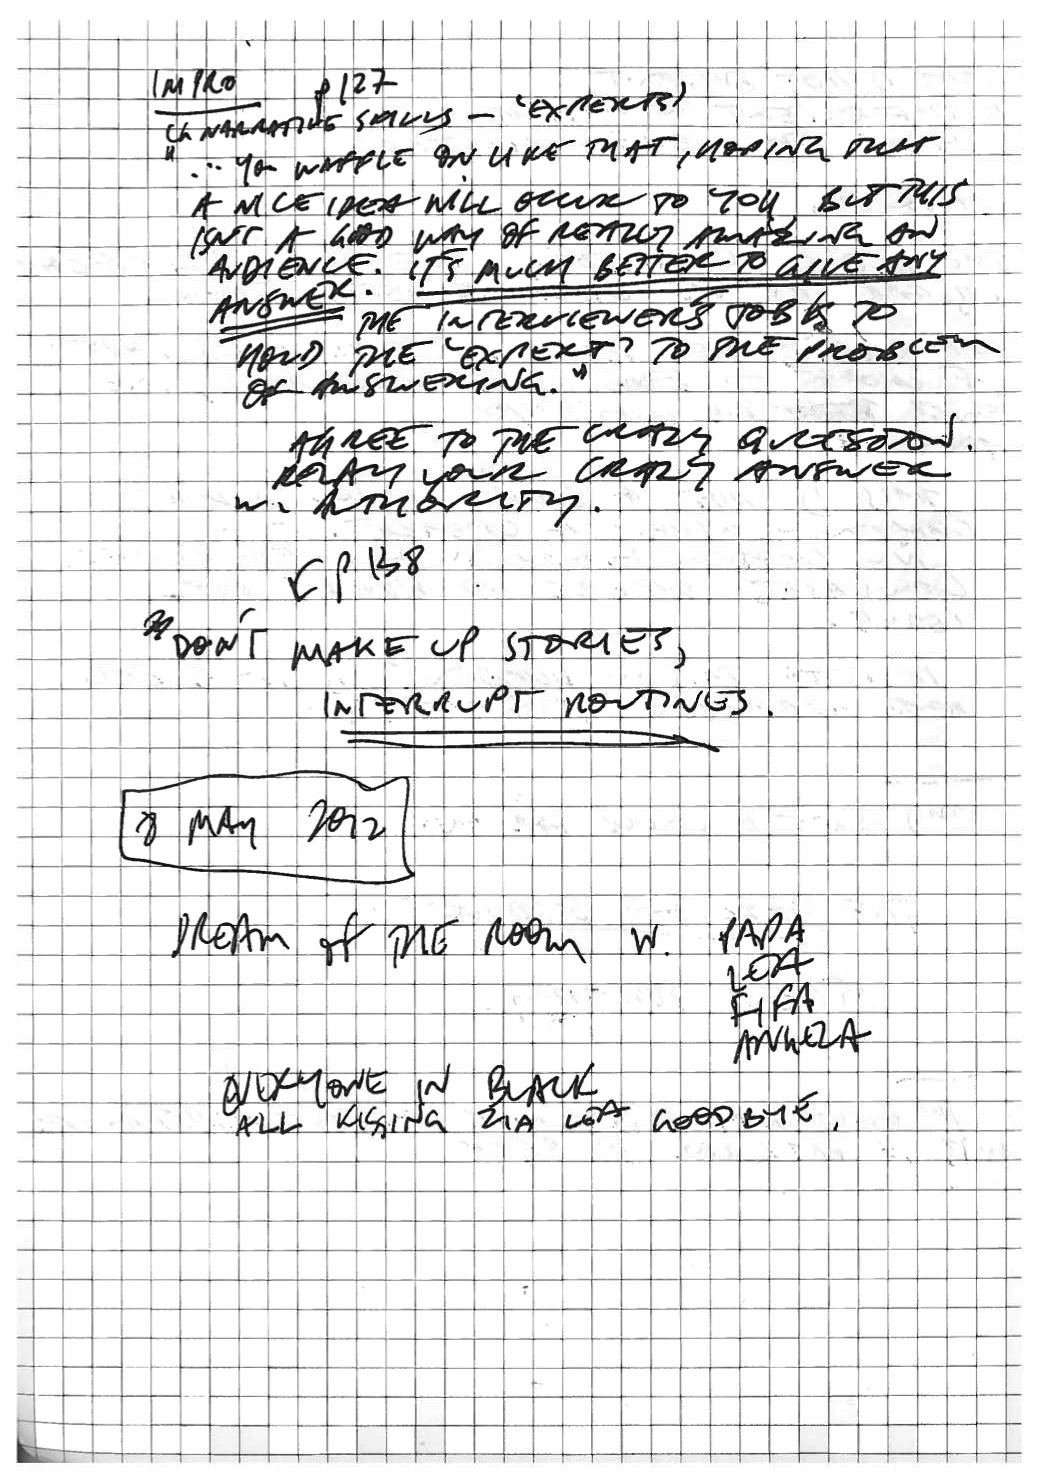 IMPRO p127
NARRATIVE SKILLS – 'EXPERTS'
"... YOU WAFFLE ON LIKE THAT, HOPING THAT
A NICE IDEA WILL OCCUR TO YOU, BUT THIS
ISN'T A GOOD WAY OF REALLY AMAZING AN
AUDIENCE. IT'S MUCH BETTER TO GIVE ANY
ANSWER. THE INTERVIEWER'S JOB IS TO
HOLD THE 'EXPERT' TO THE PROBLEM
OF ANSWERING."
AGREE TO THE CRAZY QUESTION.
RELAY YOUR CRAZY ANSWER
W. AUTHORITY.
p 138
DON'T MAKE UP STORIES,
INTERRUPT ROUTINES.
8 MAY 2012
DREAM of THE ROOM W. PAPA
LEA
FIFA
ANGELA
EVERYONE IN BLACK
ALL KISSING ZIA LEA GOODBYE.